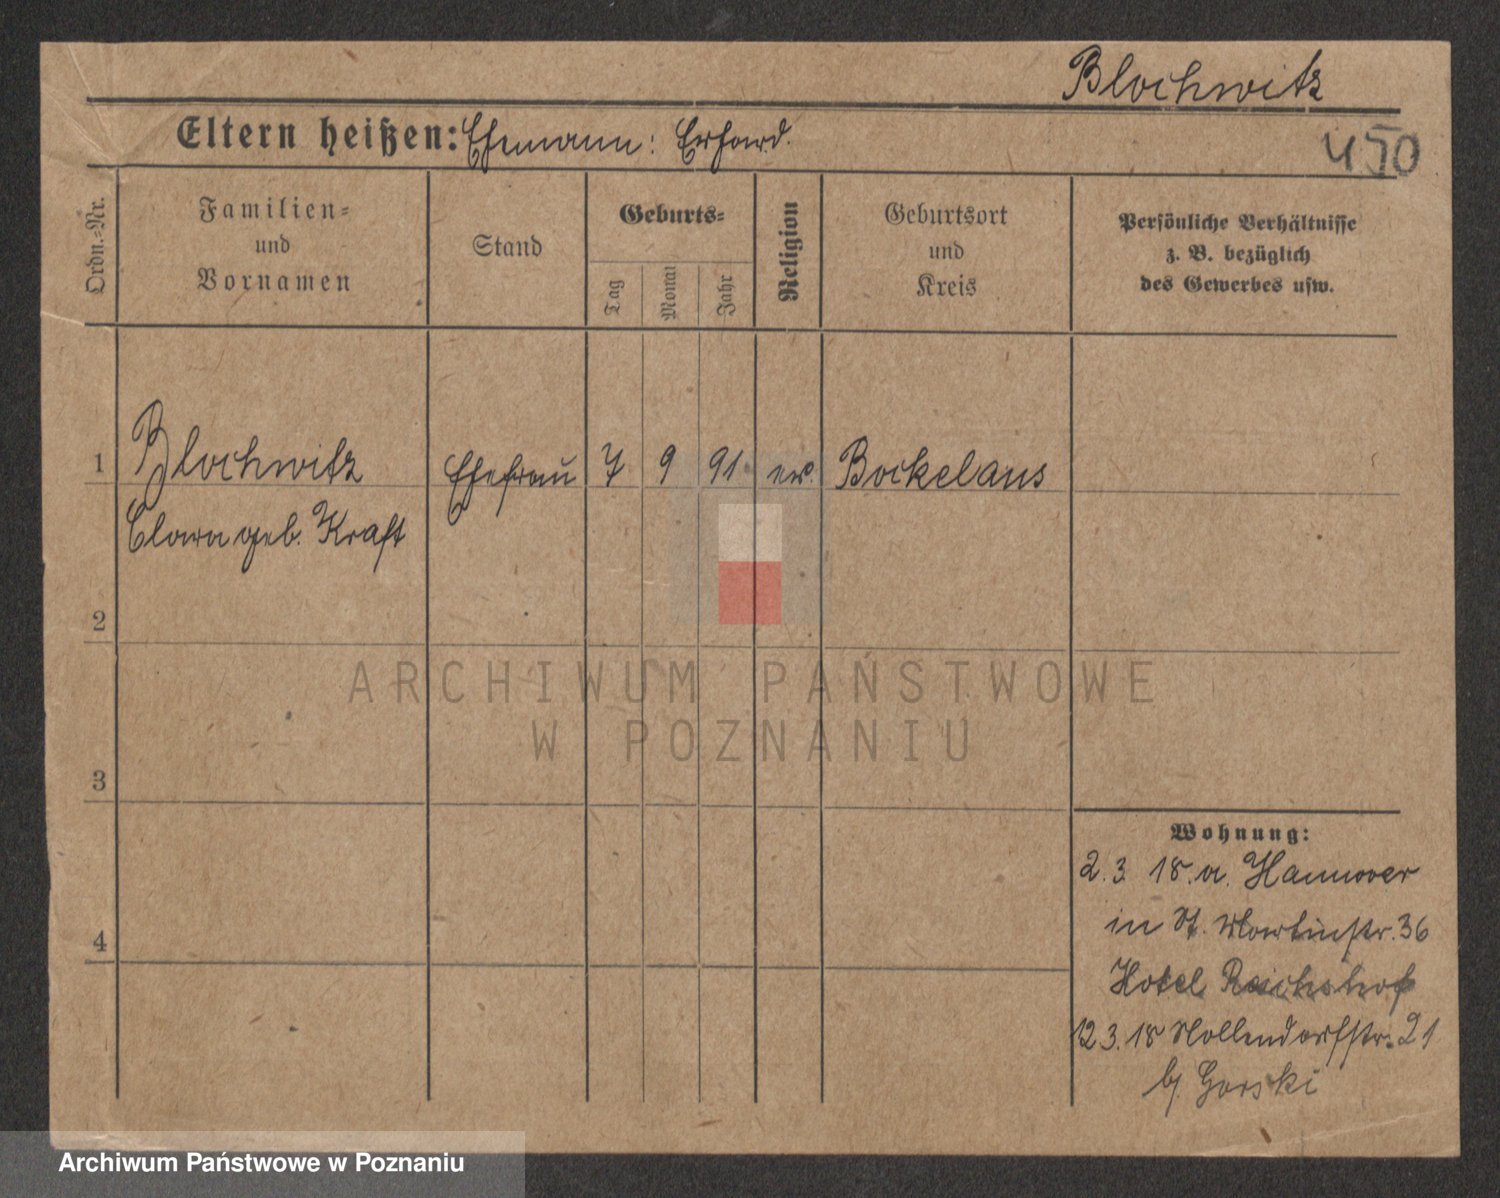 Blochwitz
Eltern heißen: Ehemann: Erhard.
450
Ordn.=Nr.
Familien=
und
Vornamen
Stand
Geburts=
Tag
Monat
Jahr
Religion
Geburtsort
und
Kreis
Persönliche Verhältnisse
z. B. bezüglich
des Gewerbes usw.
1 Blochwitz Ehefrau 7 9 91. ev. Bockelaus
Clara geb. Kraft
2
3
4
Wohnung:
2.3. 18. a. Hannover
in St. Martinstr. 36
Hotel Reichshof
12.3.18 Nollendorfstr. 21
b/ Gorski
ARCHIWUM PAŃSTWOWE
W POZNANIU
Archiwum Państwowe w Poznaniu